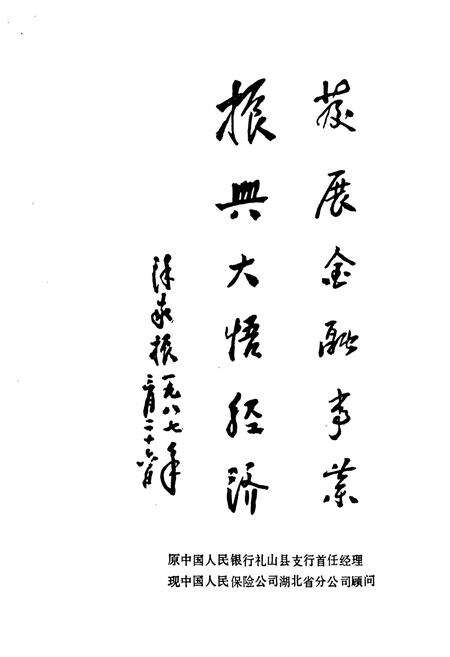 发展金融事业
振兴大悟经济
振一九八七年
二月二十六日
原中国人民银行礼山县支行首任经理
现中国人民保险公司湖北省分公司顾问